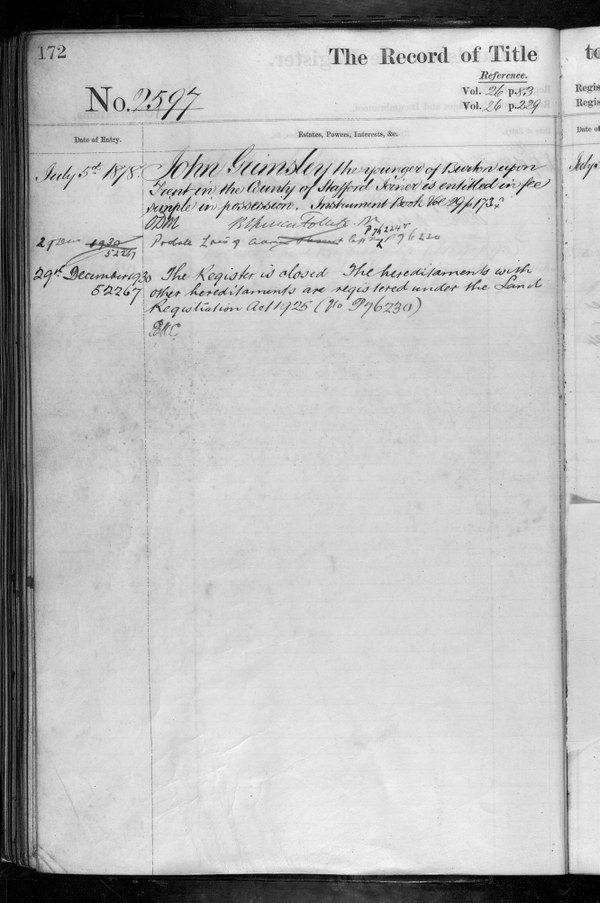 172
The Record of Title
to
Reference.
Vol. 26 p. 83
Vol. 26 p. 229
Regis
Regis
No. 2597
Date of Entry.
Estates, Powers, Interests, &c.
Date of
July 5th 1878.
John Grimsley the younger of Burton upon
Trent in the County of Stafford Joiner is entitled in fee
simple in possession. Instrument Book Vol 29 p 173
July
P76224
29 1930
52267
P76220
29th December 1930 The Register is closed The hereditaments with
52267 other hereditaments are registered under the Land
Registration Act 1925 (No P76230)